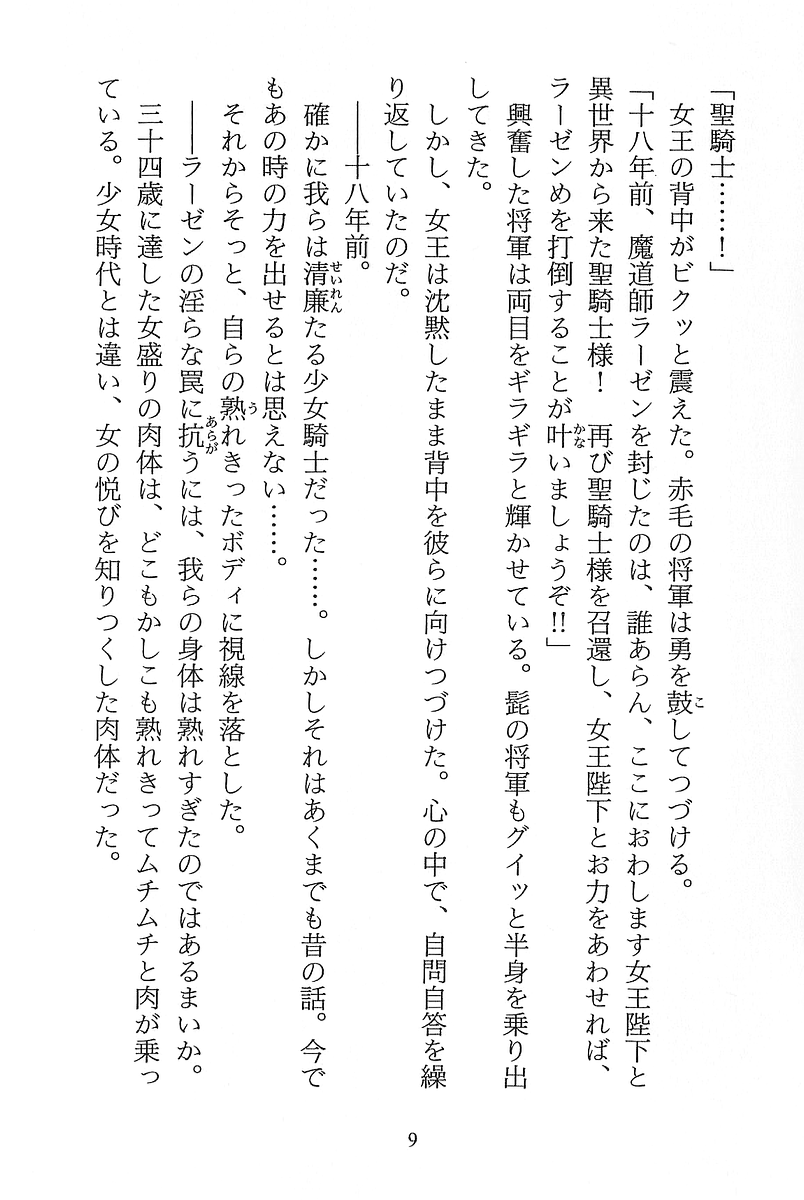 「聖騎士……！」
　女王の背中がビクッと震えた。赤毛の将軍は勇を鼓してつづける。
「十八年前、魔道師ラーゼンを封じたのは、誰あらん、ここにおわします女王陛下と
異世界から来た聖騎士様！　再び聖騎士様を召還し、女王陛下とお力をあわせれば、
ラーゼンめを打倒することが叶いましょうぞ!!」
　興奮した将軍は両目をギラギラと輝かせている。髭の将軍もグイッと半身を乗り出
してきた。
　しかし、女王は沈黙したまま背中を彼らに向けつづけた。心の中で、自問自答を繰
り返していたのだ。
　――十八年前。
　確かに我らは清廉たる少女騎士だった……。しかしそれはあくまでも昔の話。今で
もあの時の力を出せるとは思えない……。
　それからそっと、自らの熟れきったボディに視線を落とした。
　――ラーゼンの淫らな罠に抗うには、我らの身体は熟れすぎたのではあるまいか。
　三十四歳に達した女盛りの肉体は、どこもかしこも熟れきってムチムチと肉が乗っ
ている。少女時代とは違い、女の悦びを知りつくした肉体だった。
こ
かな
せいれん
う
あらが
9